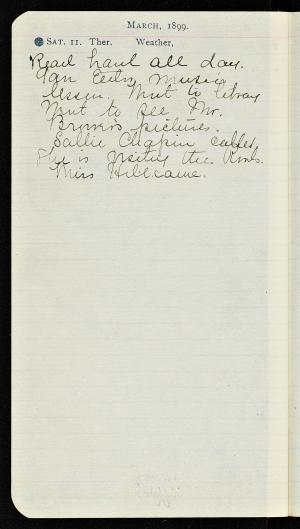 MARCH, 1899.
SAT. 11. Ther. Weather,
Read hard all day.
music
lesson. Went to library
Went to see Mr.
Brown's pictures.
Sallie Chapin called,
She is visiting the
Miss Hill came.